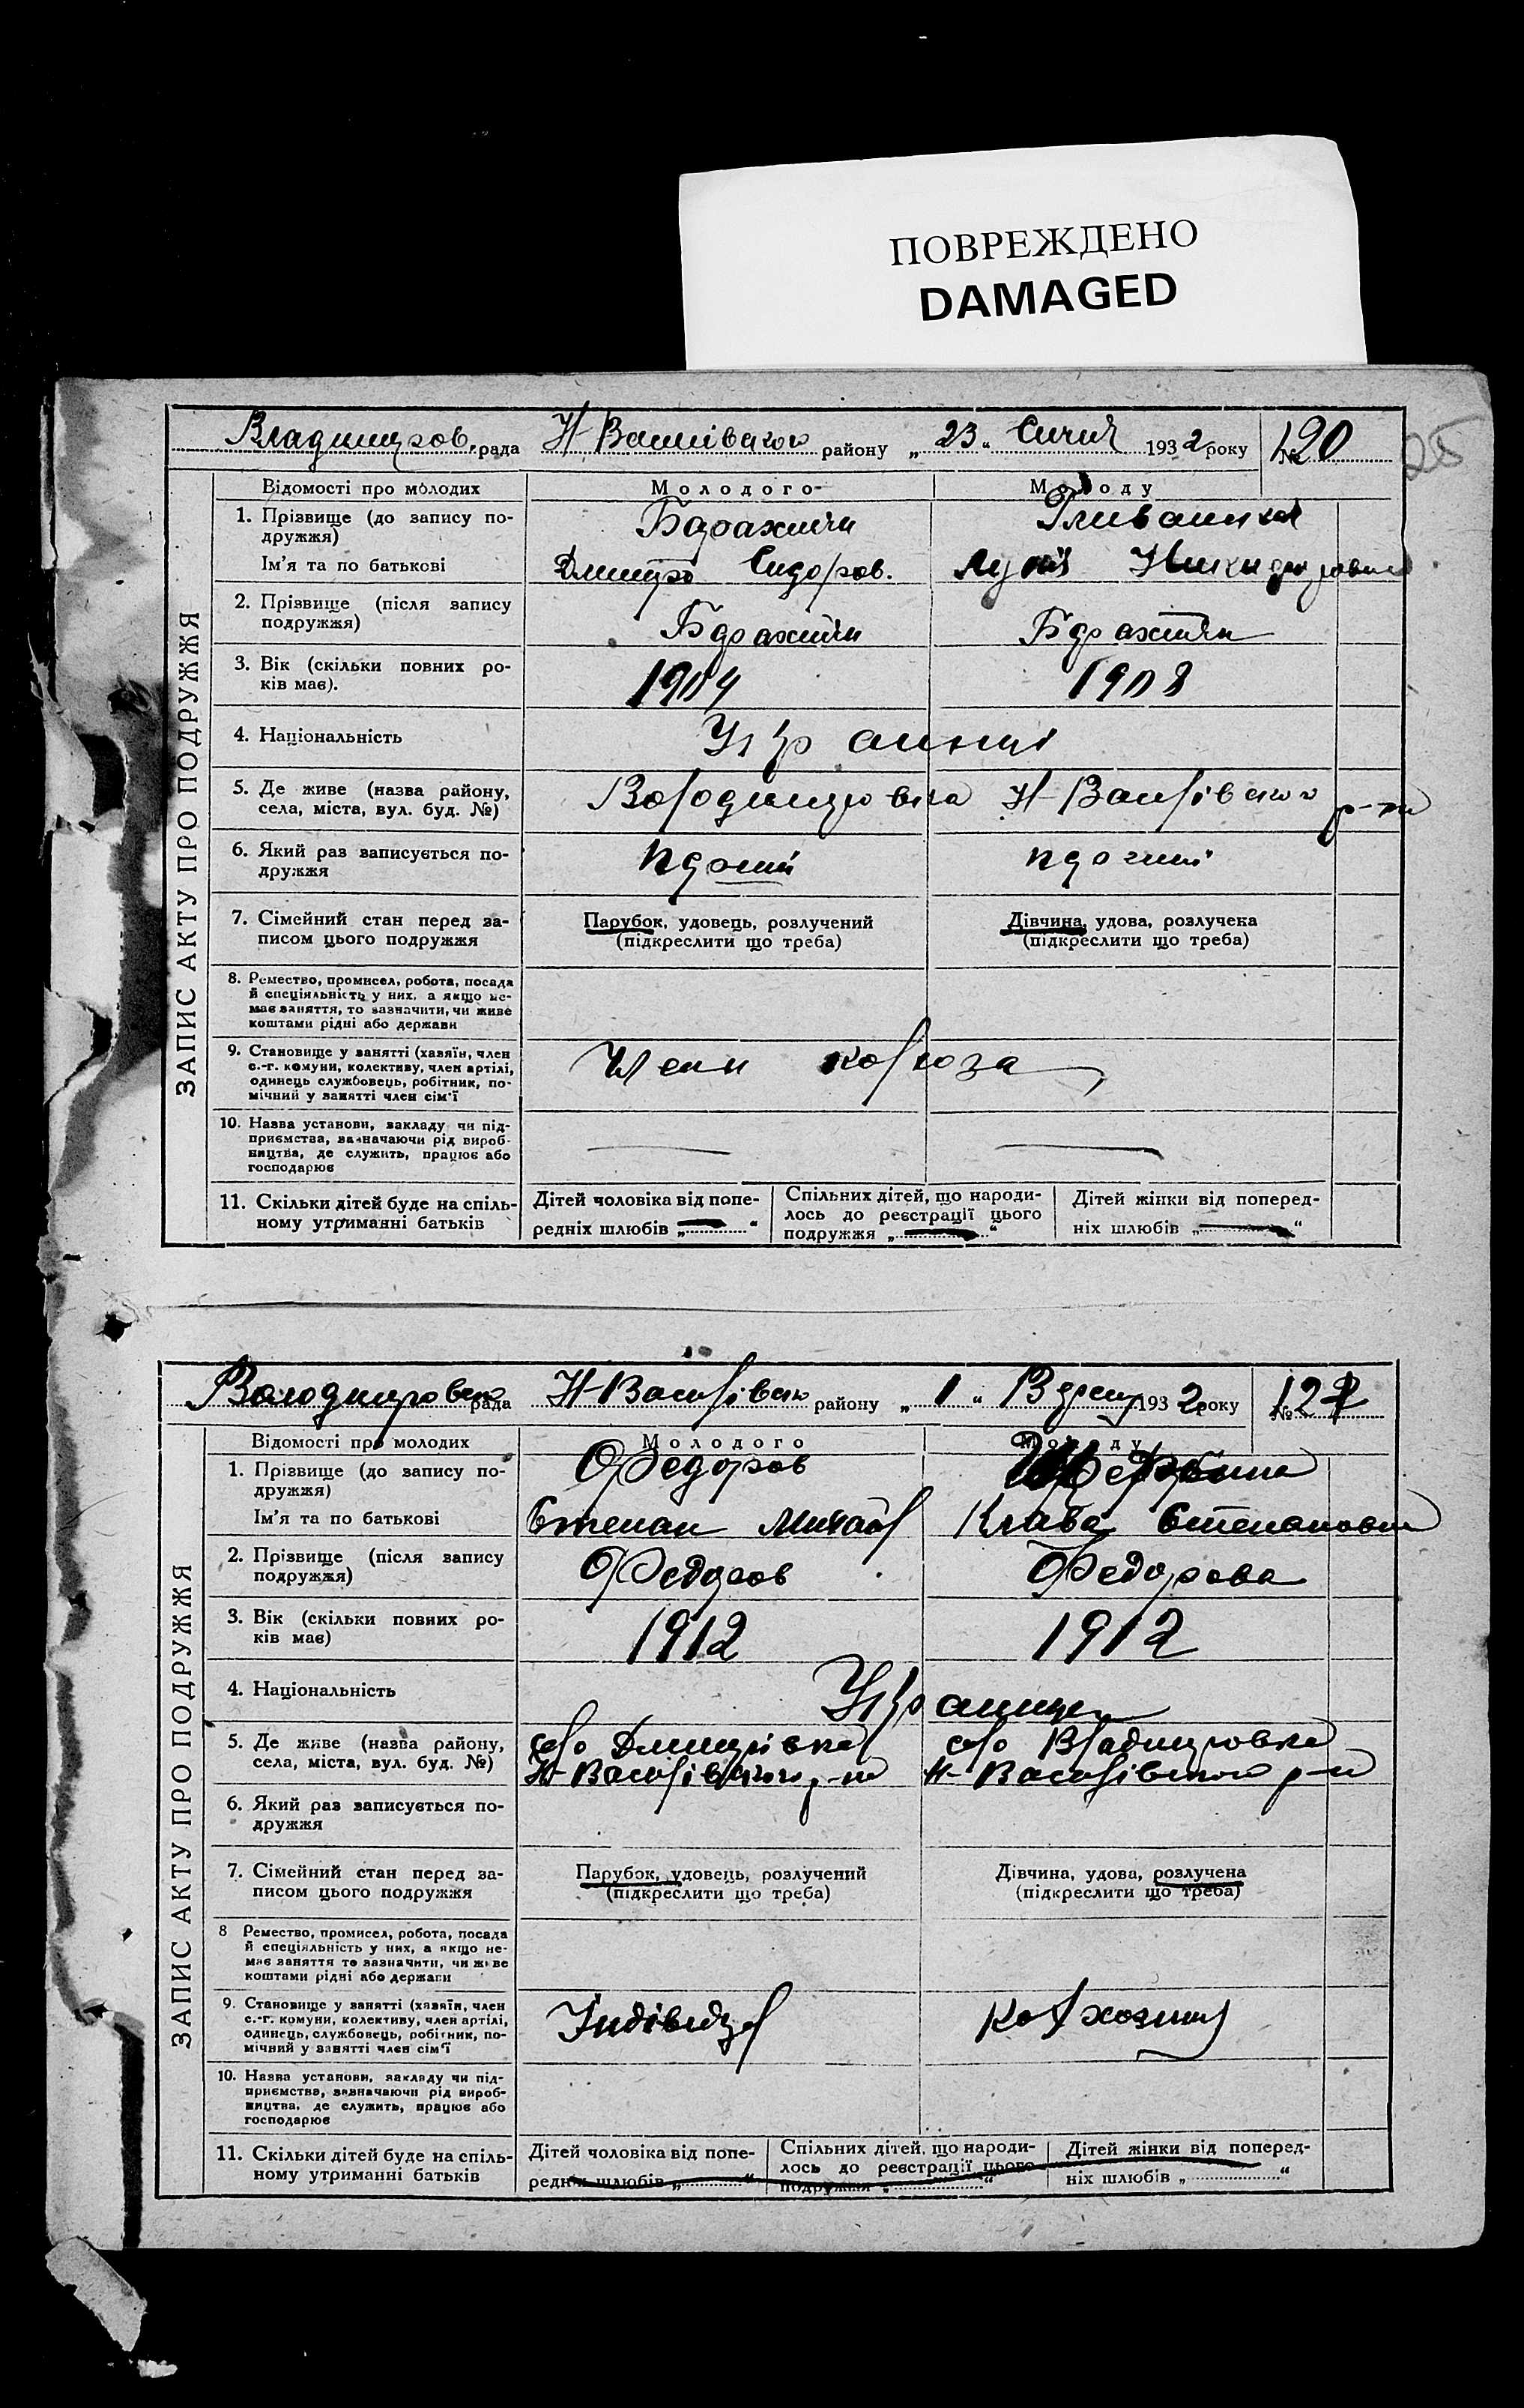 ПОВРЕЖДЕНО
DAMAGED
25
Владимиров. рада Н-Васиівського району „23“ Січня 1932 року № 120
ЗАПИС АКТУ ПРО ПОДРУЖЖЯ
Відомості про молодих Молодого Молоду
1. Прізвище (до запису по-
дружжя)
Ім'я та по батькові Дмитро Сидоров.
2. Прізвище (після запису
подружжя)
3. Вік (скільки повних ро-
ків має). 1904 1908
4. Національність
5. Де живе (назва району,
села, міста, вул. буд. №)
6. Який раз записується по-
дружжя
7. Сімейний стан перед за-
писом цього подружжя
Парубок, удовець, розлучений
(підкреслити що треба)
Дівчина, удова, розлучека
(підкреслити що треба)
8. Ремество, промисел, робота, посада
й спеціяльність у них, а якщо не-
має заняття, то зазначити, чи живе
коштами рідні або держави
9. Становище у занятті (хазяїн, член
с.-г. комуни, колективу, член артілі,
одинець службовець, робітник, по-
мічний у занятті член сім'ї
Член колгоза
10. Назва установи, закладу чи під-
приємства, зазначаючи рід вироб-
ництва, де служить, працює або
господарює
11. Скільки дітей буде на спіль-
ному утриманні батьків
Дітей чоловіка від попе-
редніх шлюбів „ “
Спільних дітей, що народи-
лось до реєстрації цього
подружжя „ “
Дітей жінки від поперед-
ніх шлюбів „ “
Володимировска рада Н-Василівсько району „1“ 1932 року № 127
ЗАПИС АКТУ ПРО ПОДРУЖЖЯ
Відомості про молодих Молодого Молоду
1. Прізвище (до запису по-
дружжя) Федоров
Ім'я та по батькові Степан Михайл Клава Степановна
2. Прізвище (після запису
подружжя) Федоров Федорова
3. Вік (скільки повних ро-
ків має) 1912 1912
4. Національність
5. Де живе (назва району,
села, міста, вул. буд. №)
с/о Дмитрівка с/о Владимровка
Н-Василівського р-ну Н-Василівського р-н
6. Який раз записується по-
дружжя
7. Сімейний стан перед за-
писом цього подружжя
Парубок, удовець, розлучений
(підкреслити що треба)
Дівчина, удова, розлучена
(підкреслити що треба)
8 Ремество, промисел, робота, посада
й спеціяльність у них, а якщо не-
має заняття то зазначити, чи живе
коштами рідні або держави
9. Становище у занятті (хазяїн, член
с.-г. комуни, колективу, член артілі,
одинець, службовець, робітник, по-
мічний у занятті член сім'ї
Індівідул Колхозниц
10. Назва установи, закладу чи під-
приємства, зазначаючи рід вироб-
ництва, де служить, працює або
господарює
11. Скільки дітей буде на спіль-
ному утриманні батьків
Дітей чоловіка від попе-
редніх шлюбів „ “
Спільних дітей, що народи-
лось до реєстрації цього
подружжя „ “
Дітей жінки від поперед-
ніх шлюбів „ “